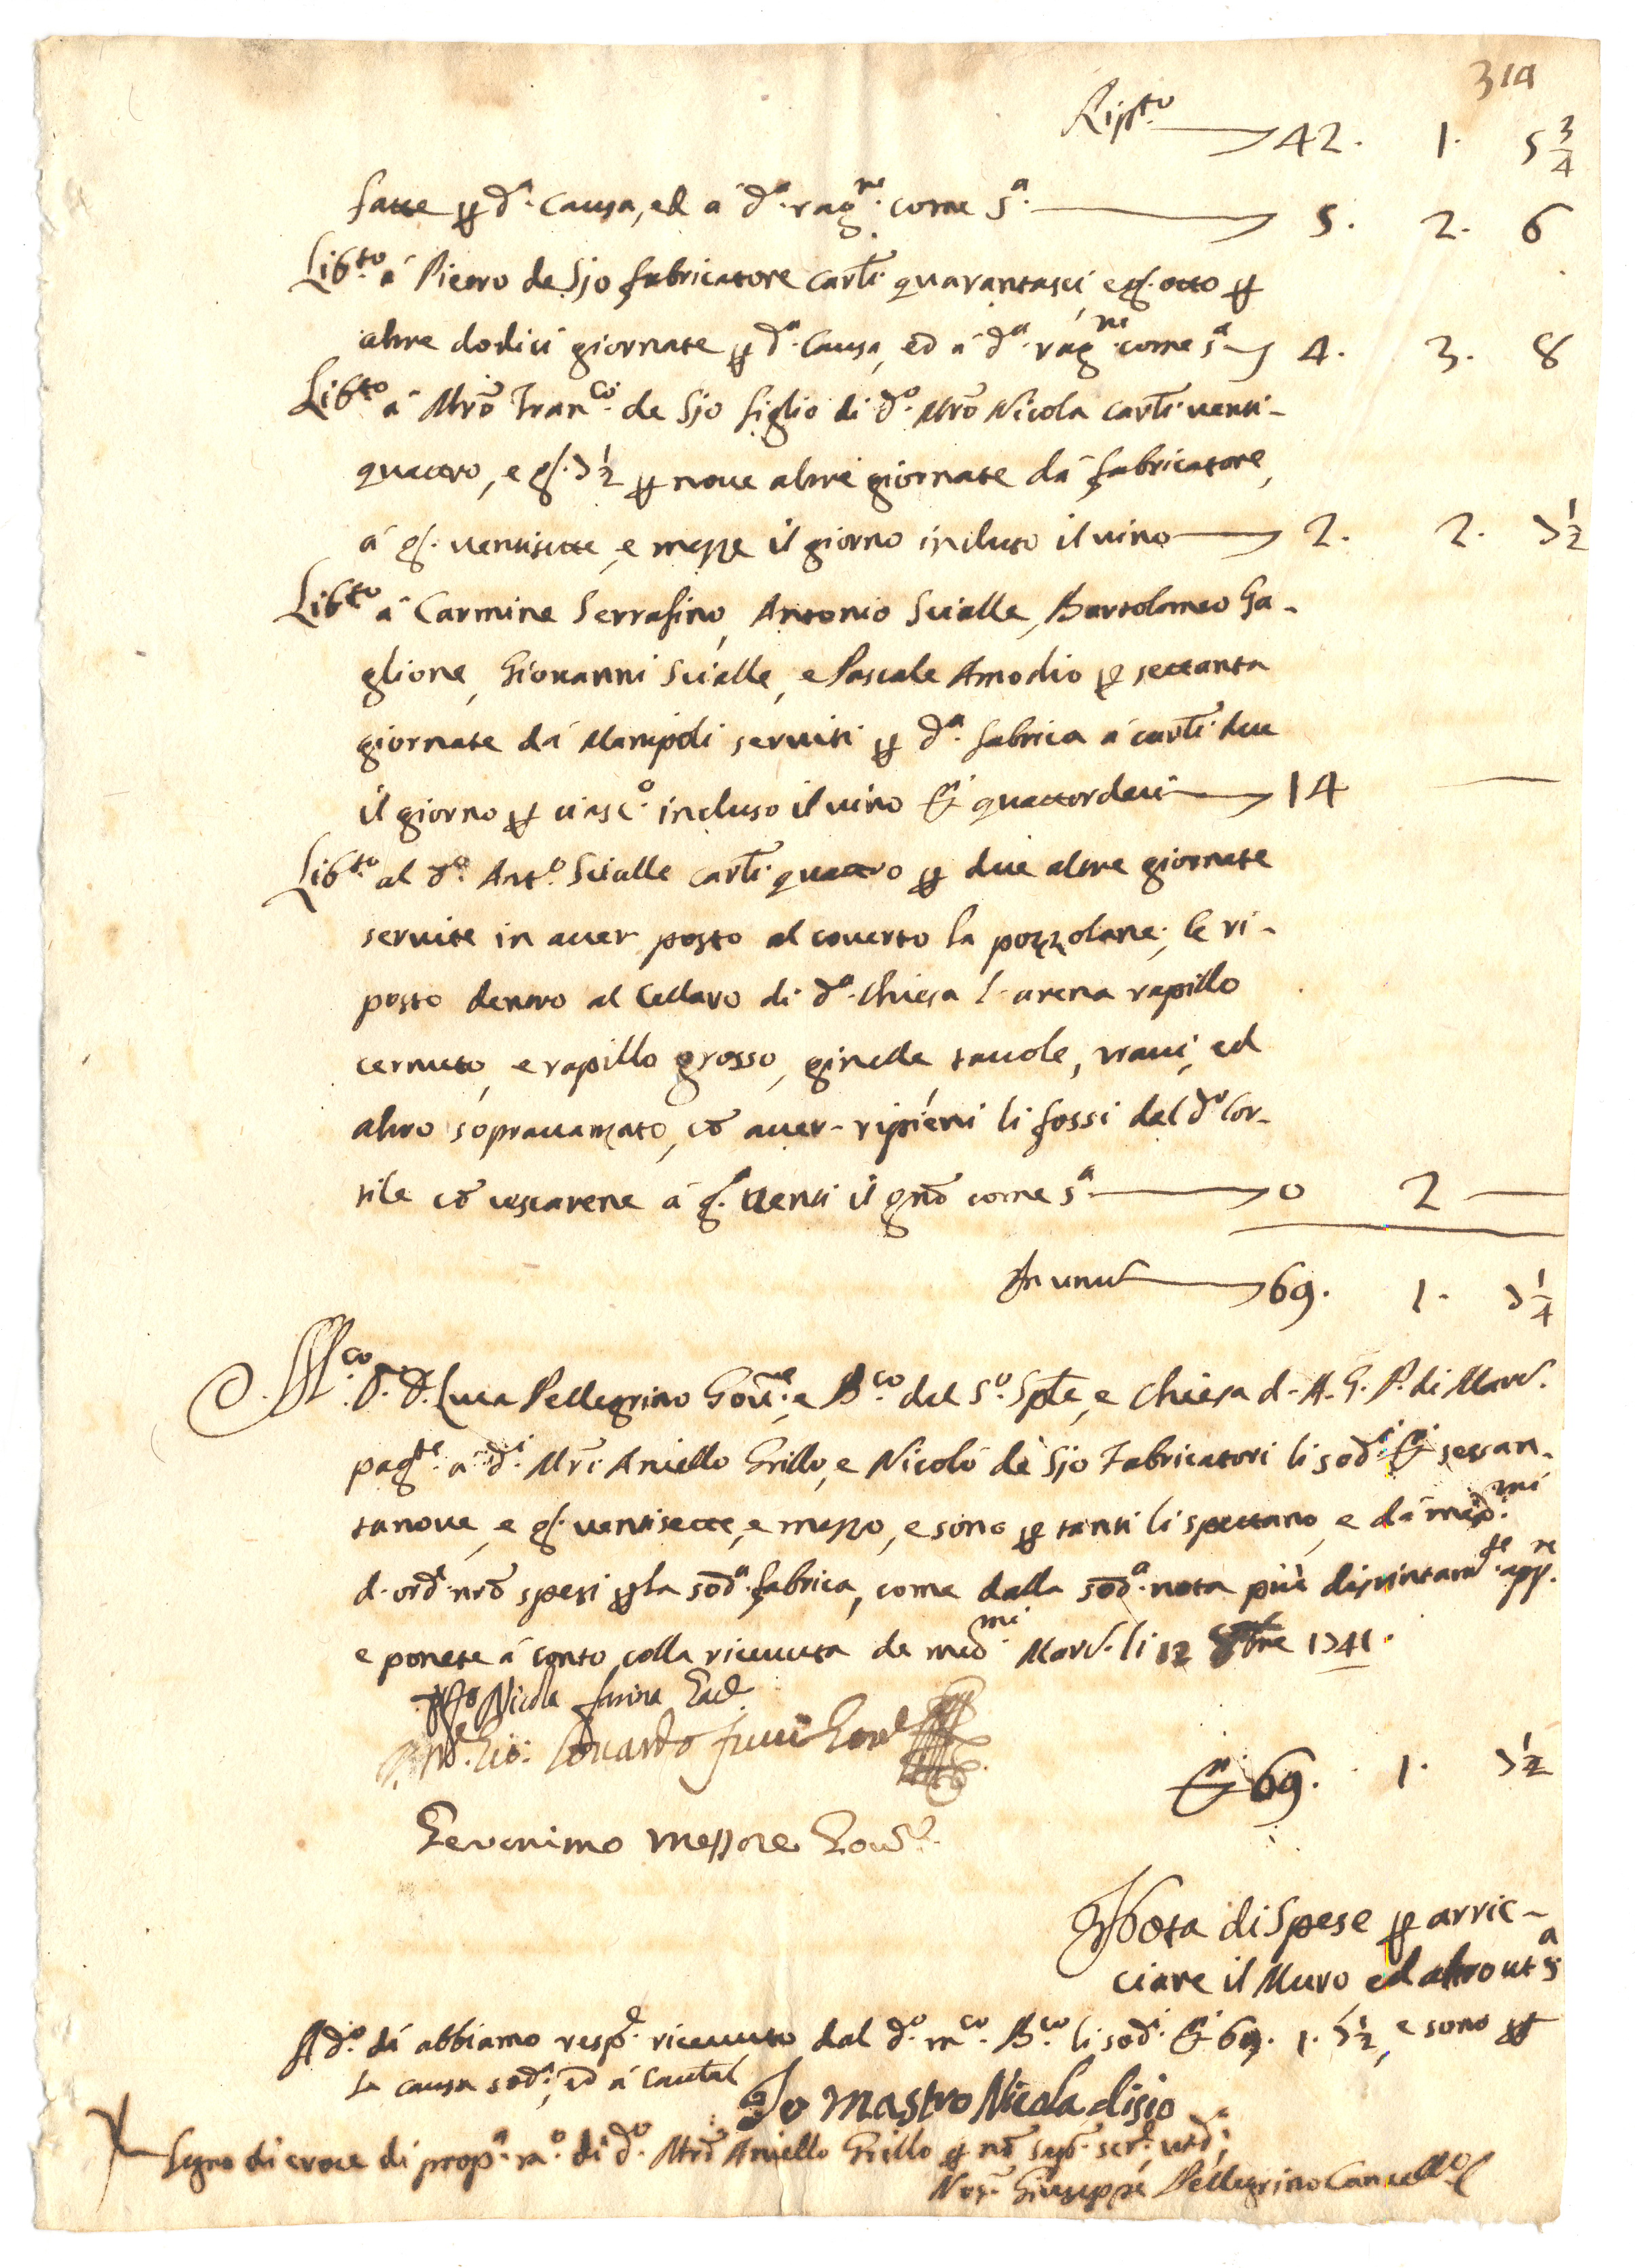 314
Ripp.to 42. 1. 5 3/4
fatte p d.a causa, ed à d.a rag.ne come s.a 5. 2. 6
Lib.to à Pietro de Sjo fabricatore carl.i quarantasei, e g.l otto p
altre dodici giornate p d.a causa, ed à d.a rag.ne come s.a 4. 3. 8
Lib.to à Mro Fran.co de Sjo figlio di d.o Mro Nicola carl.i venti-
quattro, e g.l 7 1/2 p nove altre giornate dà fabricatore,
à g.l ventisette, e mezze il giorno incluso il vino 2. 2. 7 1/2
Lib.to à Carmine Serrafino, Antonio Scialle, Bartolomeo Ga-
glione, Giovanni Scialle, e Pascale Amodio p settanta
giornate dà Manipoli serviti p d.a fabrica à carl.i due
il giorno p ciasc.o incluso il vino D.i quattordeci 14
Lib.to al d.o Ant.o Scialle carl.i quattro p due altre giornate
servite in aver posto al coverto la pozzolane, le ri-
posto dentro al Cellaro di d.a Chiesa l'arena rapillo
cernuto, e rapillo grosso, ginelle tavole, travi, ed
altro sopravanzato, cō aver ripieni li fossi del d.o Cor-
tile cō iscarene à g.l venti il gno come s.a 0 2
In unum 69. 1. 7 1/4
M.co D.r D. Luca Pellegrino Gov.re, e B.co del S.o Sple, e Chiesa d. A. G. P. di Marc.
pag.te à d.i Mri Aniello Grillo, e Nicolò de Sjo Fabricatori li sod.i D.i sessan-
tanove, e g.l ventisette, e mezzo, e sono p tanti li spettano, e dà med.mi
d. ord. nro spesi p la sod.a fabrica, come dalla sod.a nota più distintam.te app.re
e ponete à conto colla ricevuta de med.mi Marc. li 12 8bre 1741.
Nicola farina
Geronimo Messore Gov.re
D.i 69. 1. 7 1/2
Nota di Spese p arric-
ciare il Muro ed altro ut s.a
A d.o dì abbiamo resp.e ricevuto dal d.o m.co B.co li sod.i D.i 69. 1. 7 1/2, e sono p
la causa sod.a, ed à cautel
Io mastro Nicola disio
Segno di croce di prop.a m.o di d.o Mro Aniello Grillo p nō sap. scr.e ut d.i
Not. Giuseppe Pellegrino Cancell.e